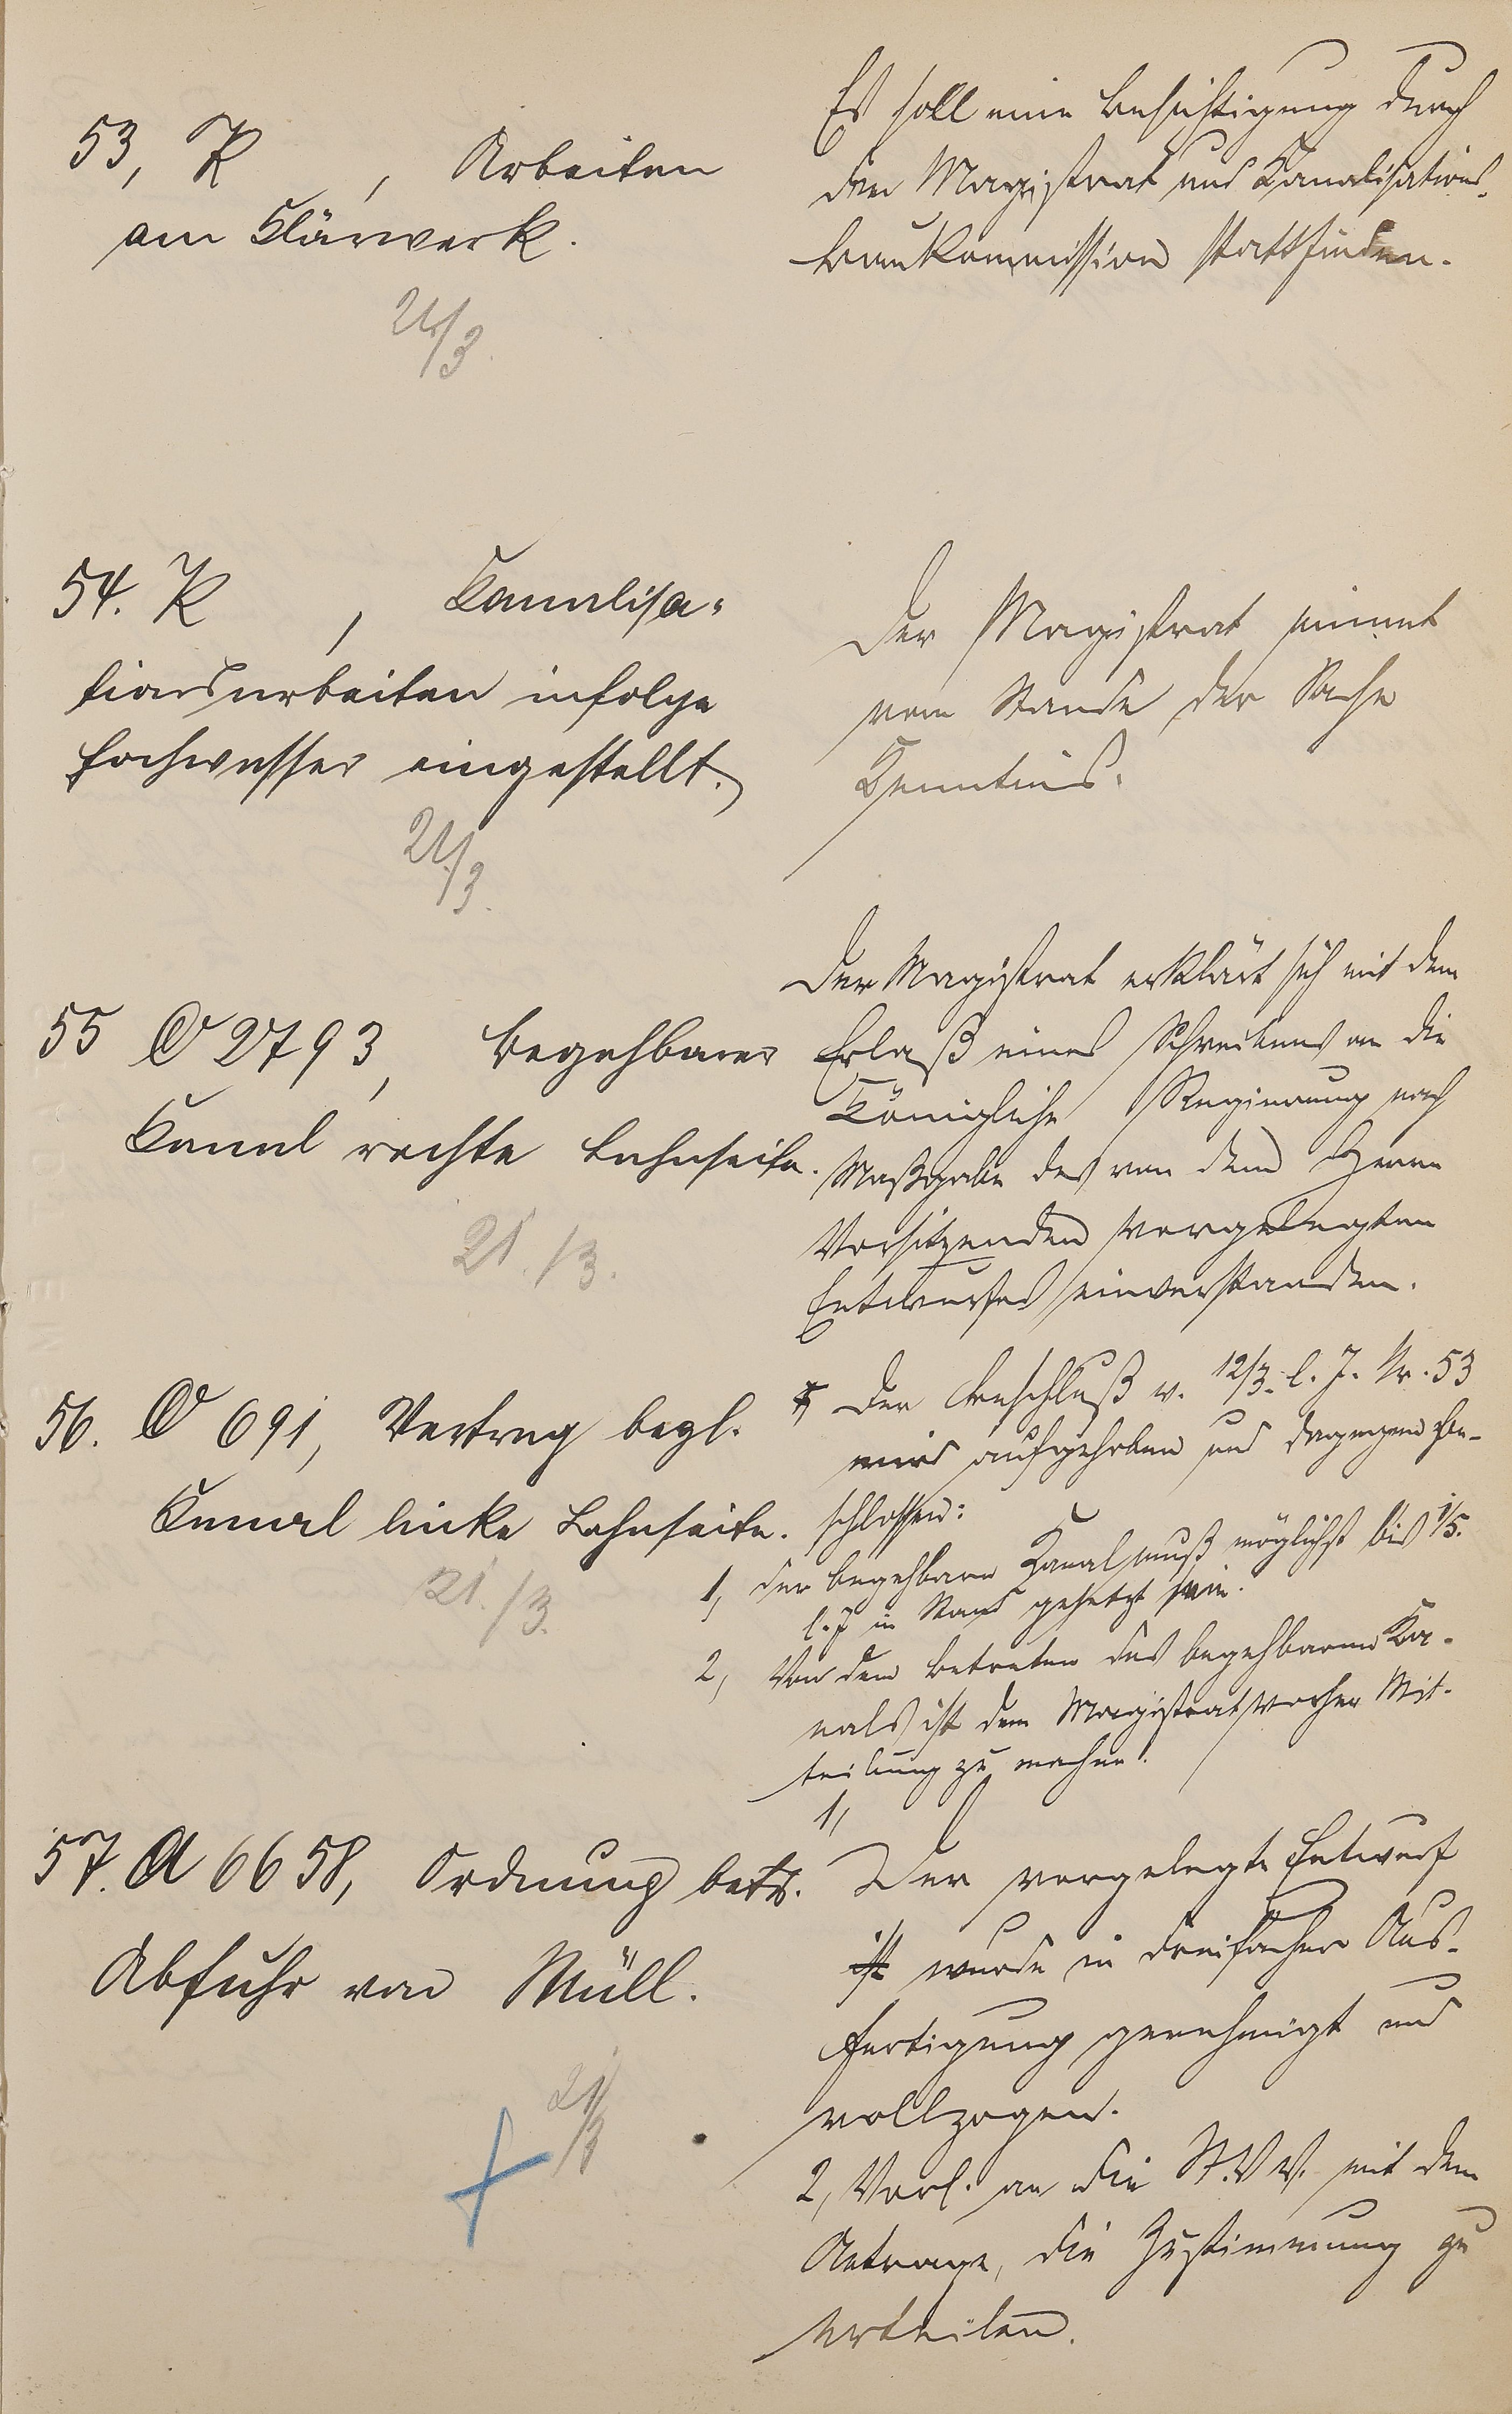 53, K , Arbeiten
am Klärwerk.
21/3.
Es soll eine Besichtigung durch
den Magistrat und Kanalisations-
baukommission stattfinden.
54. K , Kanalisa-
tionsarbeiten infolge
Hochwasser eingestellt.
21/3.
Der Magistrat nimmt
vom Stande der Sache
Kenntnis.
55 O 2793, Begehbarer
Kanal rechte Lahnseite.
21./3.
Der Magistrat erklärt sich mit dem
Erlaß eines Schreibens an die
Königliche Regierung nach
Maßgabe des von dem Herrn
Vorsitzenden vorgelegten
Entwurfes einverstanden.
56. O 691, Vertrag bezl.
Kanal linke Lahnseite.
21./3.
Der Beschluß v. 12/3. l. J. Nr. 53
wird aufgehoben und dagegen be-
schlossen:
1, der begehbare Kanal muß möglichst bis 1/5.
l. J in Stand gesetzt sein.
2, Von dem Betreten des begehbaren Ka-
nals ist dem Magistrat vorher Mit-
teilung zu machen.
57. A 6658, Ordnung betr.
Abfuhr von Müll.
21/3
1,
Der vorgelegte Entwurf
ist wurde in dreifacher Aus-
fertigung genehmigt und
vollzogen.
2, Vorl. an die St. V V. mit dem
Antrage, die Zustimmung zu
erteilen.